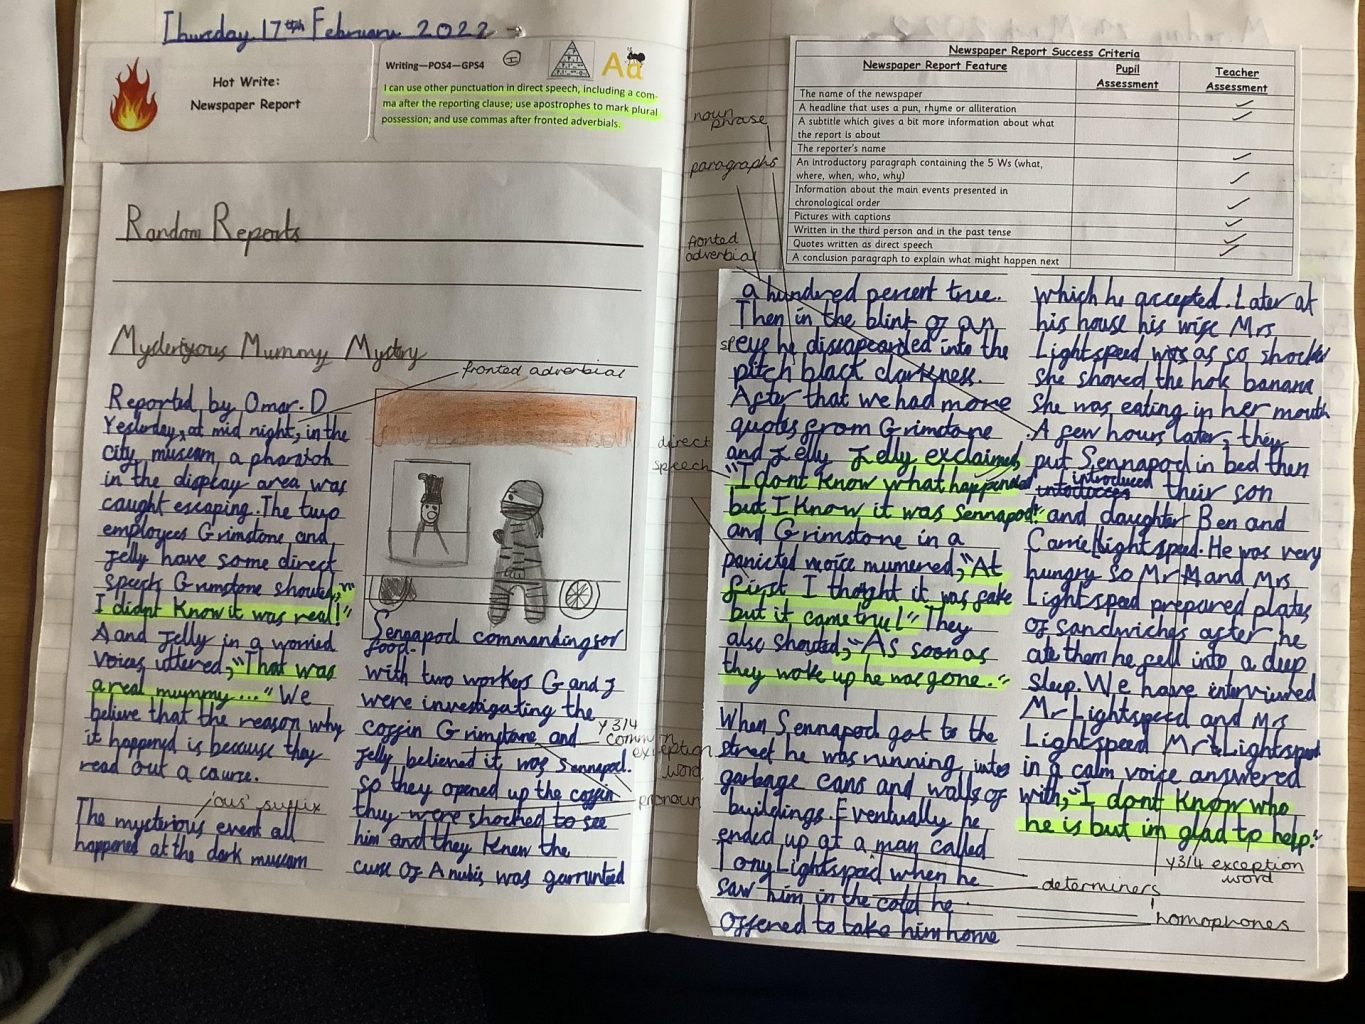 Thursday 17th February 2022
Hot Write:
Newspaper Report
Writing—POS4—GPS4
I
Aa
I can use other punctuation in direct speech, including a com-
ma after the reporting clause; use apostrophes to mark plural
possession; and use commas after fronted adverbials.
Random Reports
Mysteriyous Mummy Mystory
fronted adverbial
Reported by Omar.D
Yesterday, at mid night, in the
city museam a pharaoh
in the display area was
caught escaping. The two
employees Grimstone and
Jelly have some direct
speech Grimstone shouted, "
I didnt know it was real!"
A and Jelly in a worried
voices uttered, "That was
a real mummy..." We
believe that the reason why
it happened is because they
read out a cource.
'ous' suffix
The mysterious event all
happened at the dark museam
Sennapod commanding for
food.
with two workers G and J
were investigating the
coffin Grimstone and
Jelly believed it was Sennapod.
so they opened up the coffin
they were shocked to see
him and they knew the
curse of Anubis was garrunteed
Y3/4
common
exception
word
pronoun
noun
phrase
paragraphs
fronted
adverbial
direct
speech
Newspaper Report Success Criteria
Newspaper Report Feature
Pupil
Assessment
Teacher
Assessment
The name of the newspaper
A headline that uses a pun, rhyme or alliteration
A subtitle which gives a bit more information about what
the report is about
The reporter's name
An introductory paragraph containing the 5 Ws (what,
where, when, who, why)
Information about the main events presented in
chronological order
Pictures with captions
Written in the third person and in the past tense
Quotes written as direct speech
A conclusion paragraph to explain what might happen next
a hundred percent true.
Then in the blink of an
eye he dissapearded into the
pitch black darkness.
After that we had more
quotes from Grimstone
and Jelly Jelly exclaimed,
"I dont know what happended
but I know it was Sennapod!"
and Grimstone in a
panicted voice mumered, "At
first I thoght it was fake
but it came true!" They
also shouted, "As soon as
they woke up he was gone."
When Sennapod got to the
street he was running into
garbage cans and walls of
buildings. Eventually he
ended up at a man called
Tony Lightspeed when he
saw him in the cold he
offered to take him home
which he accepted. Later at
his house his wife Mrs
Lightspeed was as so shocked
she shoved the hole banana
she was eating in her mouth
. A few hours later, they
put Sennapod in bed then
introduced their son
and daughter Ben and
Carrie Lightspeed. He was very
hungry so Mr and Mrs
Lightspeed prepared plates
of sandwiches after he
ate them he fell into a deep
sleep. We have interviewed
Mr Lightspeed and Mrs
Lightspeed Mr Lightspeed
in a calm voice answered
with, "I dont know who
he is but im glad to help."
Y3/4 exception
word
determiners
homophones